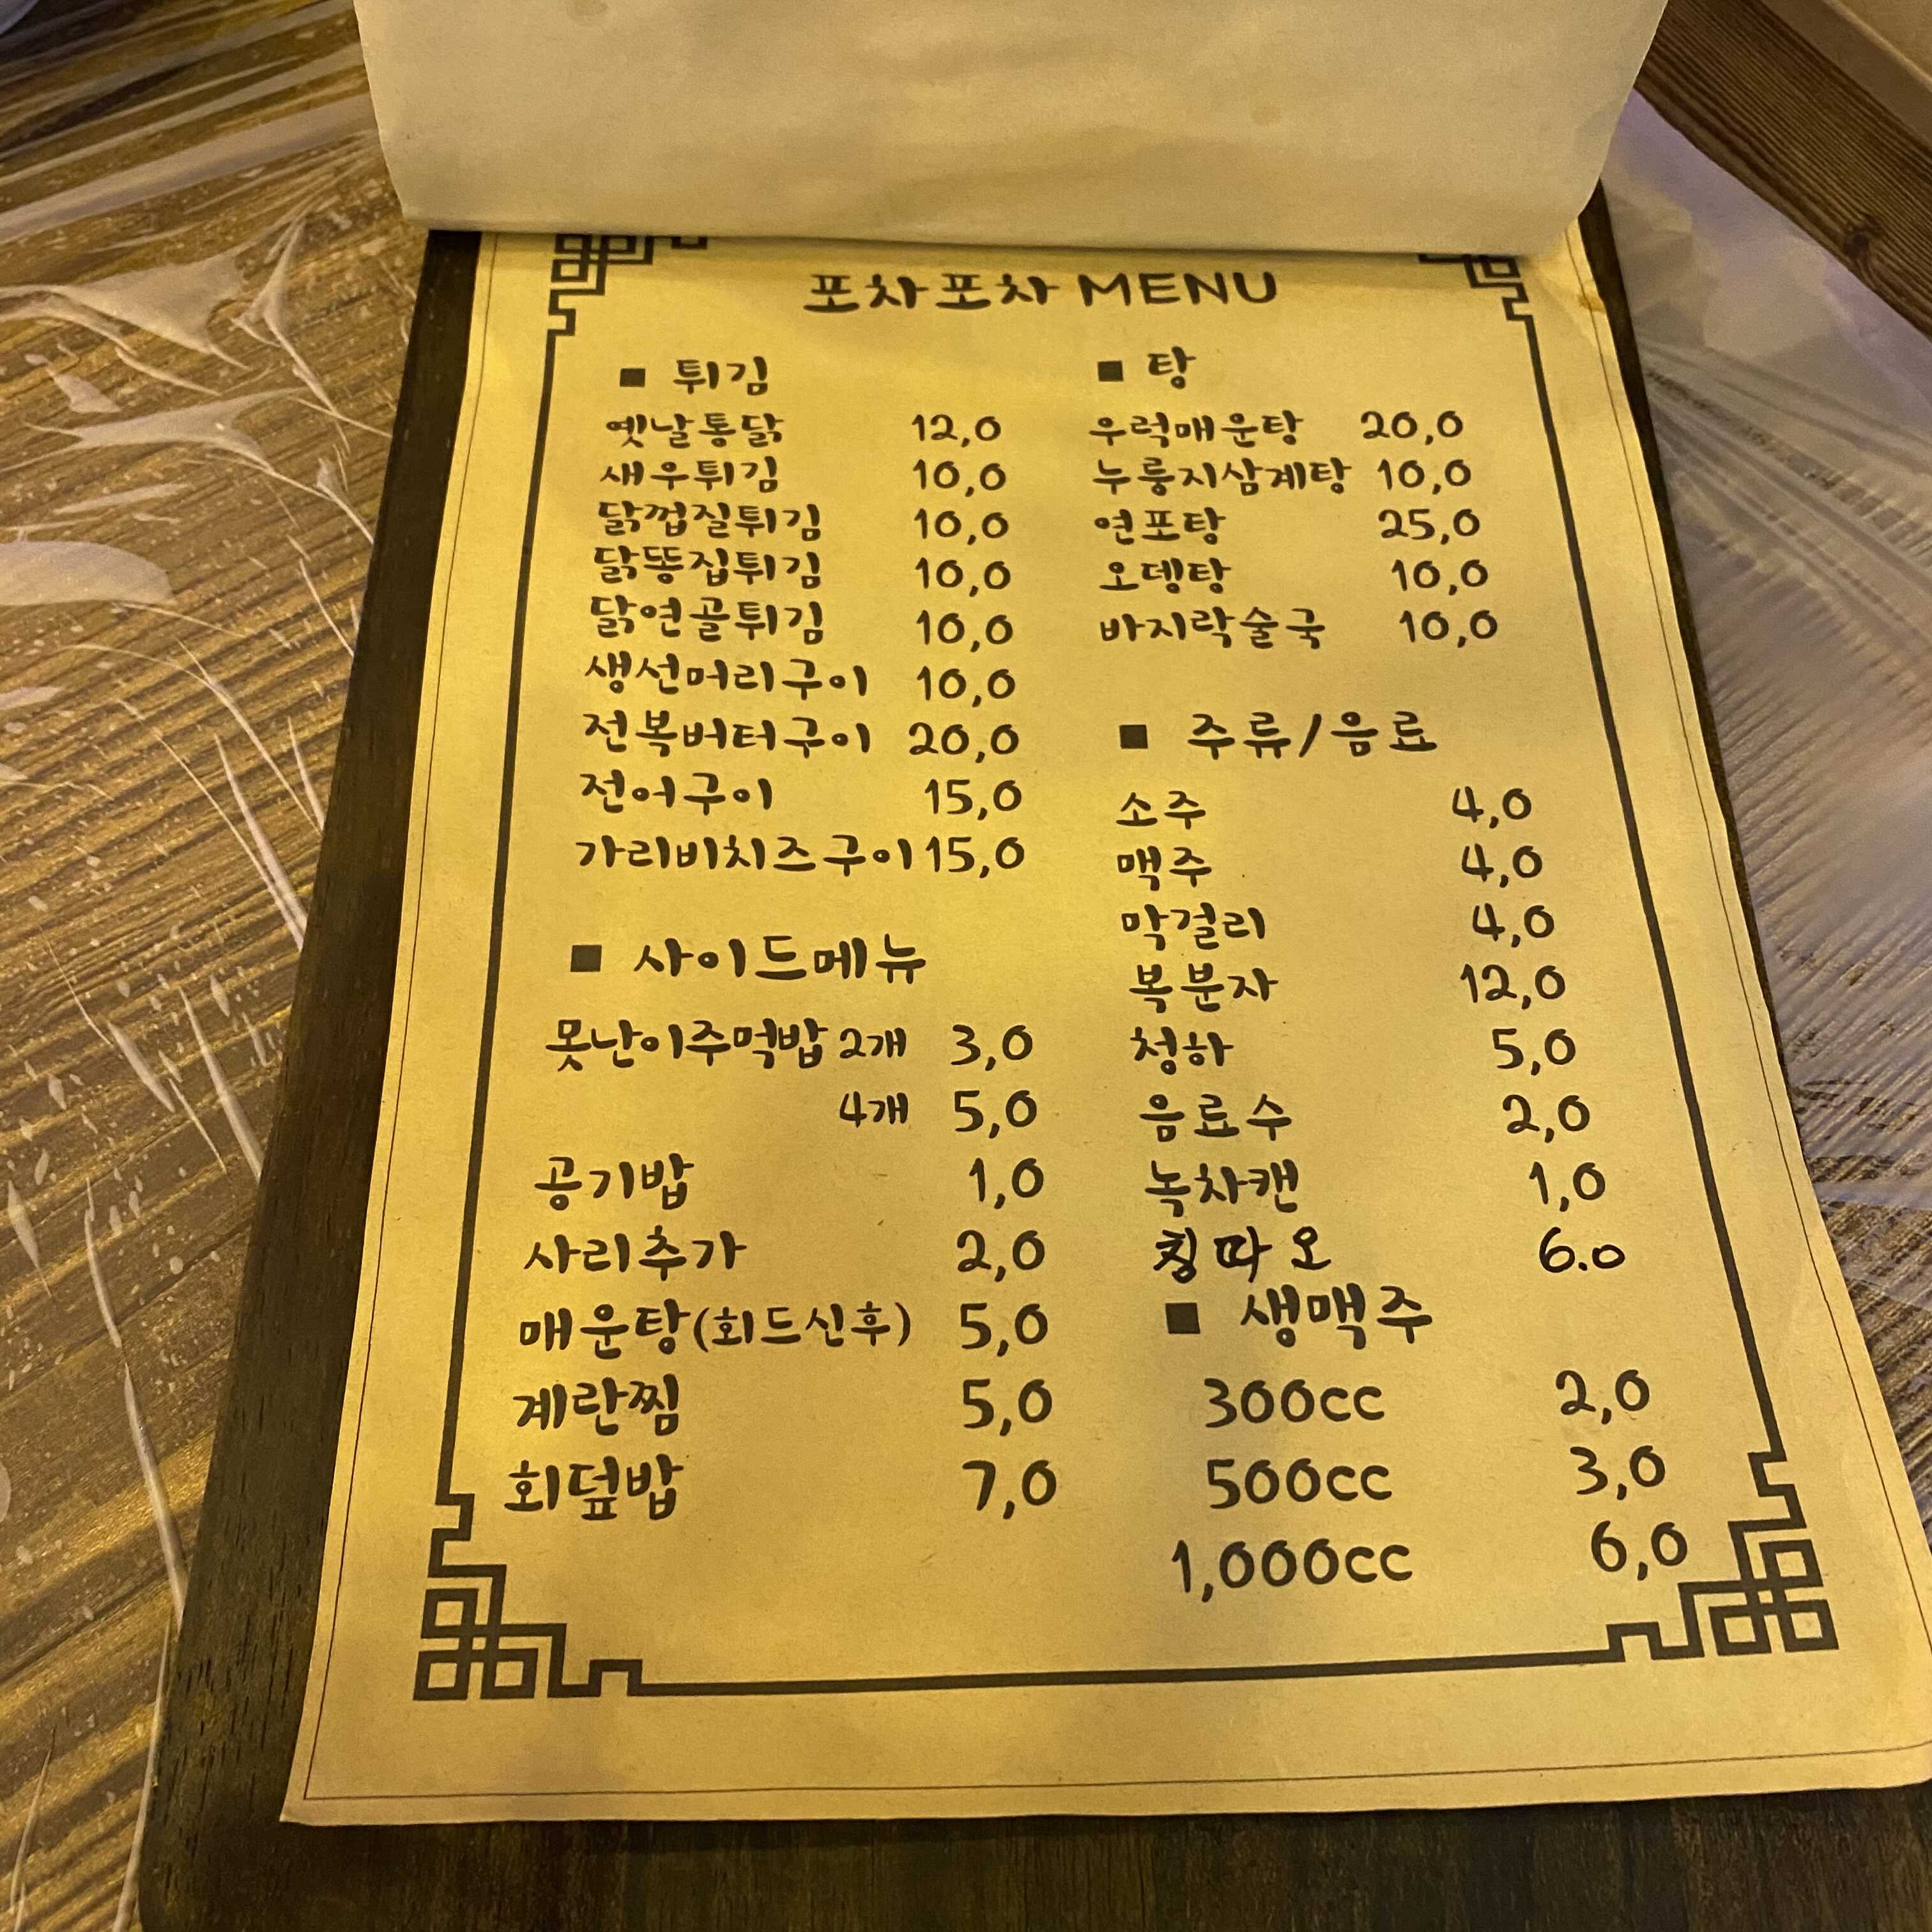 포차포차 MENU
■ 튀김
옛날통닭 12,0
새우튀김 10,0
닭껍질튀김 10,0
닭똥집튀김 10,0
닭연골튀김 10,0
생선머리구이 10,0
전복버터구이 20,0
전어구이 15,0
가리비치즈구이 15,0
■ 사이드메뉴
못난이주먹밥 2개 3,0
4개 5,0
공기밥 1,0
사리추가 2,0
매운탕(회드신후) 5,0
계란찜 5,0
회덮밥 7,0
■ 탕
우럭매운탕 20,0
누룽지삼계탕 10,0
연포탕 25,0
오뎅탕 10,0
바지락술국 10,0
■ 주류/음료
소주 4,0
맥주 4,0
막걸리 4,0
복분자 12,0
청하 5,0
음료수 2,0
녹차캔 1,0
칭따오 6.0
■ 생맥주
300cc 2,0
500cc 3,0
1,000cc 6,0